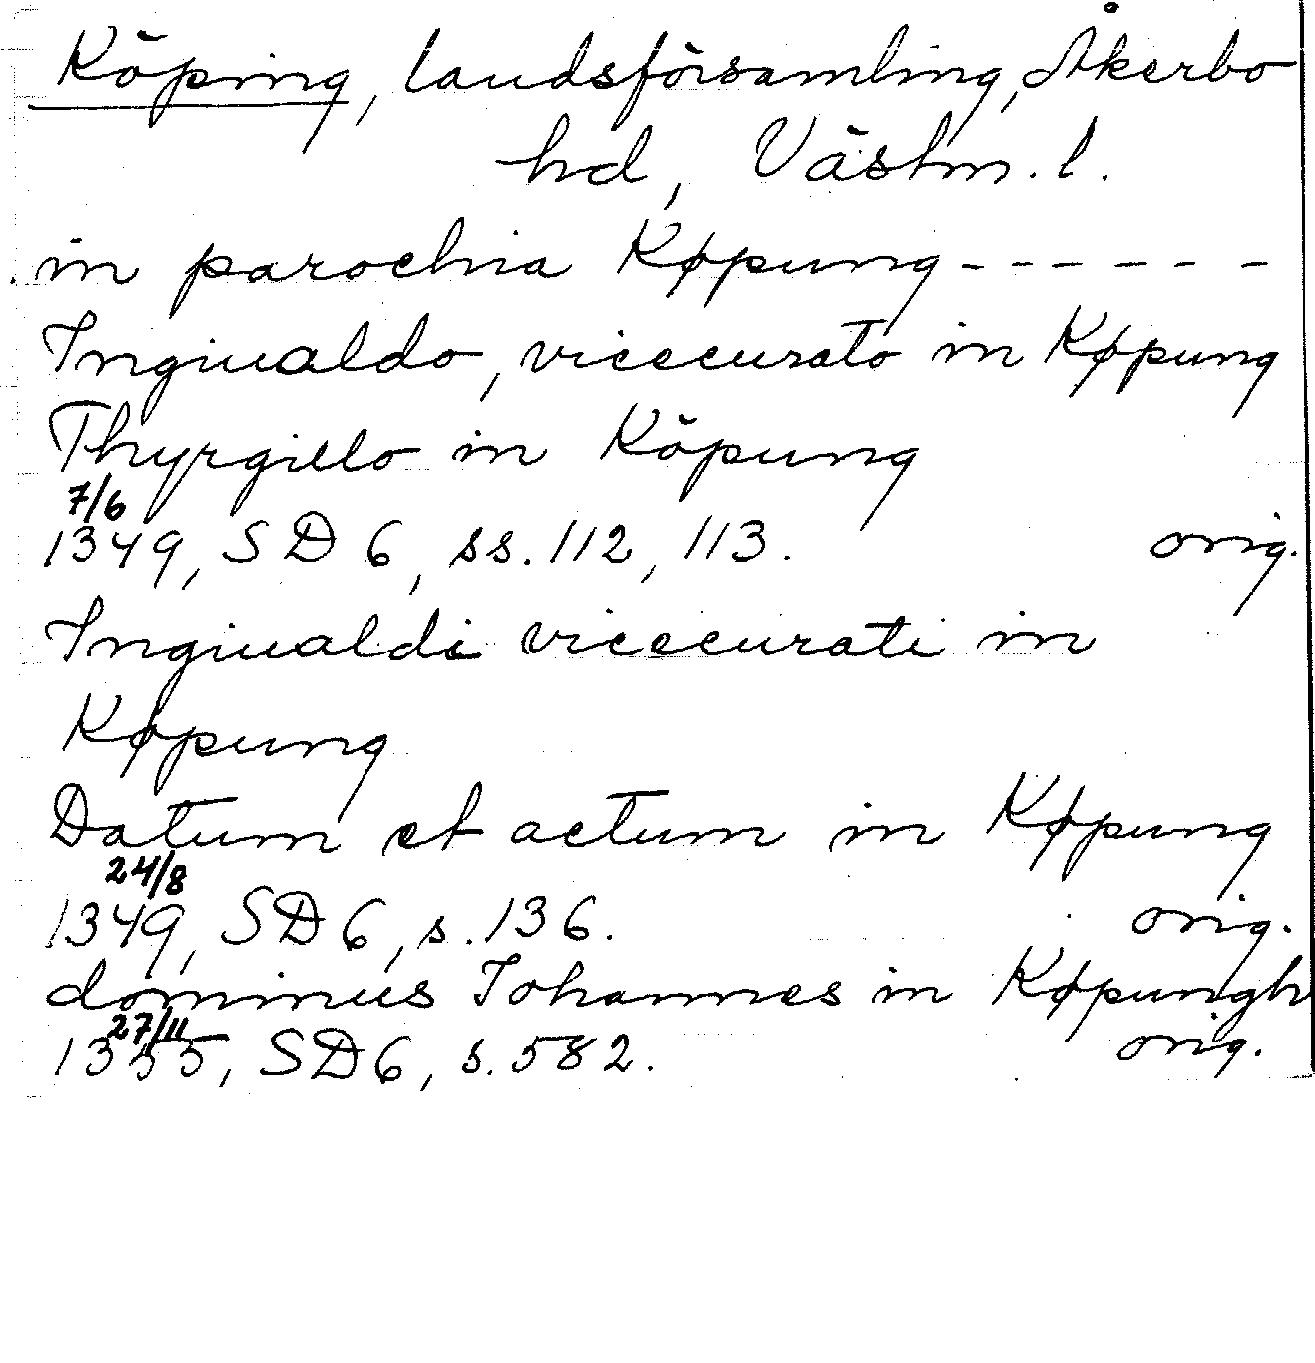 Köping, landsförsamling, Åkerbo
hd, Västm. l.
in parochia Køpung - - - - - -
Ingiualdo, vicecurato in Køpung
Thyrgillo in Köpung
7/6
1349, SD 6, ss. 112, 113. orig.
Ingiualdi vicecurati in
Køpung
Datum et actum in Køpung
24/8
1349, SD 6, s. 136. orig.
dominus Iohannes in Køpungh
27/11
1355, SD 6, s. 582. orig.